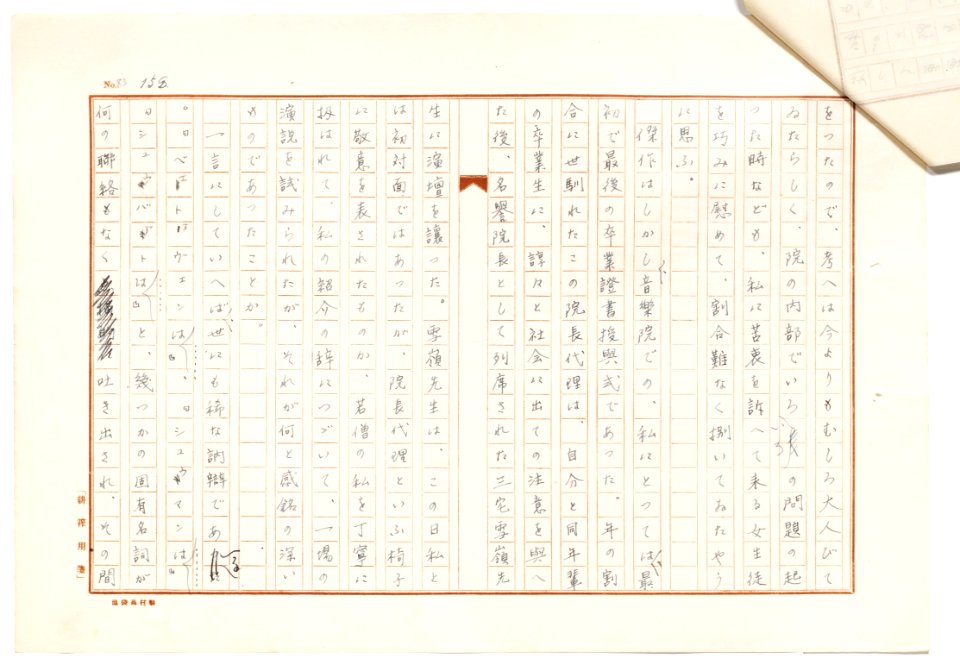 No.83 158
をつたので、考へは今よりもむしろ大人びて
ゐたらしく、院の内部でいろ〳〵の問題の起
つた時なども、私に苦衷を訴へて来る女生徒
を巧みに慰めて、割合難なく捌いてゐたやう
に思ふ。
傑作はしかし音樂院での、私にとつては最
初で最後の卒業證書授與式であつた。年の割
合に世馴れたこの院長代理は、自分と同年輩
の卒業生に、諄々と社会に出ての注意を與へ
た後、名譽院長として列席された三宅雪嶺先
生に演壇を讓つた。雪嶺先生は、この日私と
は初対面ではあつたが、院長代理といふ椅子
に敬意を表されたものか、若僧の私を丁寧に
扱はれて、私の紹介の辞につゞいて、一場の
演説を試みられたが、それが何と感銘の深い
ものであつたことか。
一言にしていへば、世にも稀な訥辯であ
。ロベエトトヴエンは、ロシユウマンは
ロシュウバトは〟と、幾つかの固有名詞が
何の聯絡もなく吐き出され、その間